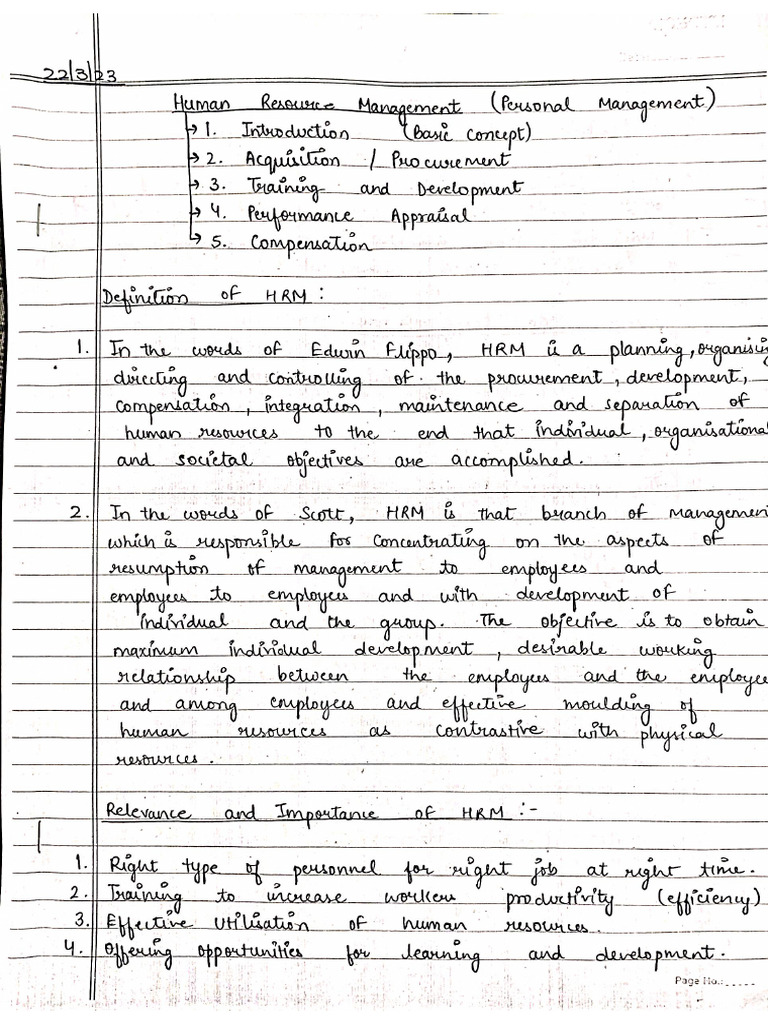 22/3/23
Human Resource Management (Personal Management)
1. Introduction (Basic concept)
2. Acquisition / Procurement
3. Training and Development
4. Performance Appraisal
5. Compensation
Definition of HRM :
1. In the words of Edwin Flippo, HRM is a planning, organising
directing and controlling of the procurement, development,
compensation, integration, maintenance and separation of
human resources to the end that individual, organisational
and societal objectives are accomplished.
2. In the words of Scott, HRM is that branch of managemen
which is responsible for concentrating on the aspects of
resumption of management to employees and
employees to employees and with development of
individual and the group. The objective is to obtain
maximum individual development, desirable working
relationship between the employees and the employee
and among employees and effective moulding of
human resources as contrastive with physical
resources.
Relevance and Importance of HRM :-
1. Right type of personnel for right job at right time.
2. Training to increase workers productivity (efficiency)
3. Effective utilisation of human resources.
4. Offering opportunities for learning and development.
Page No.: